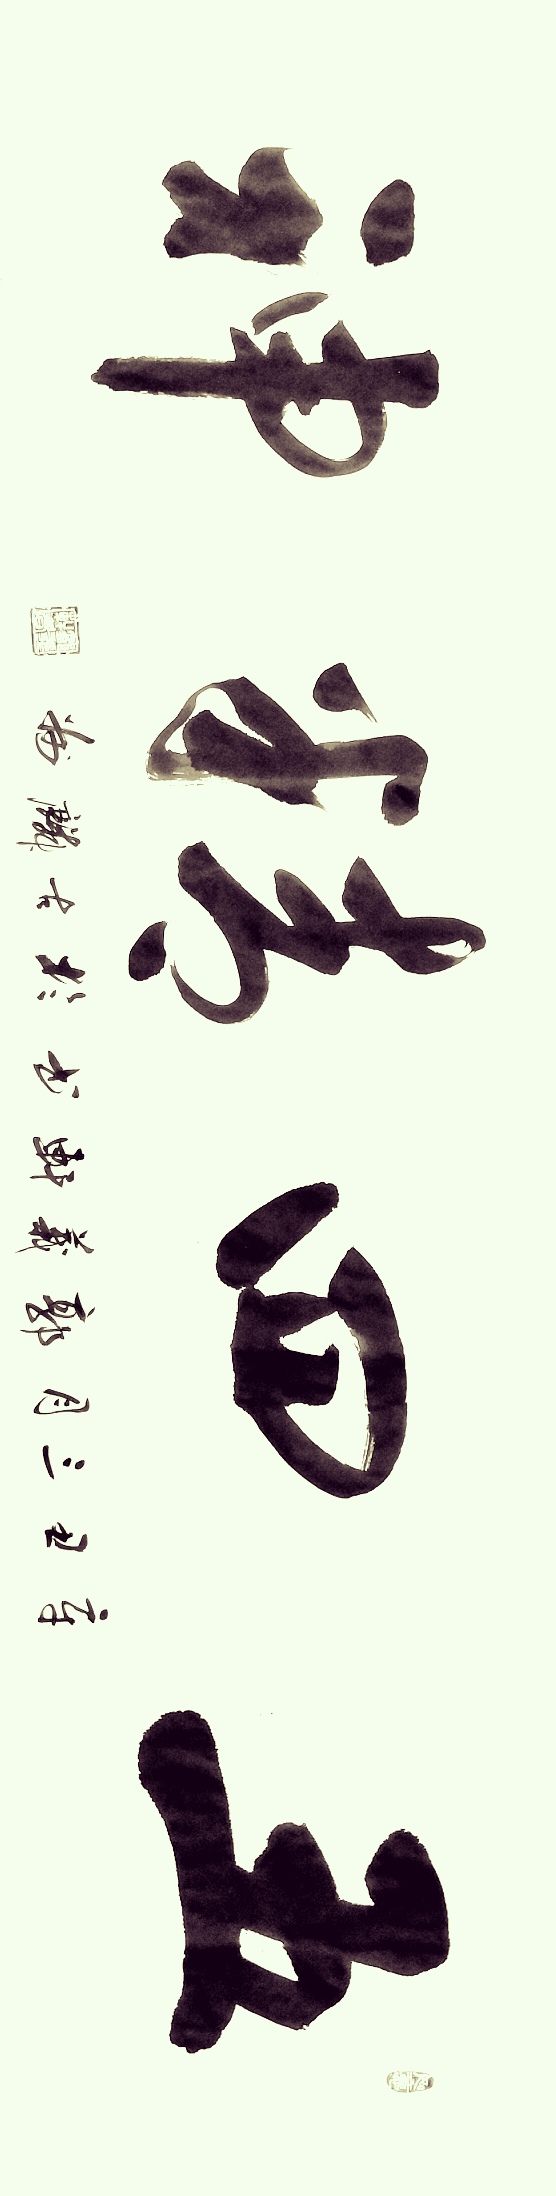 五四精神
辛丑三月郭義軒书於古麟州